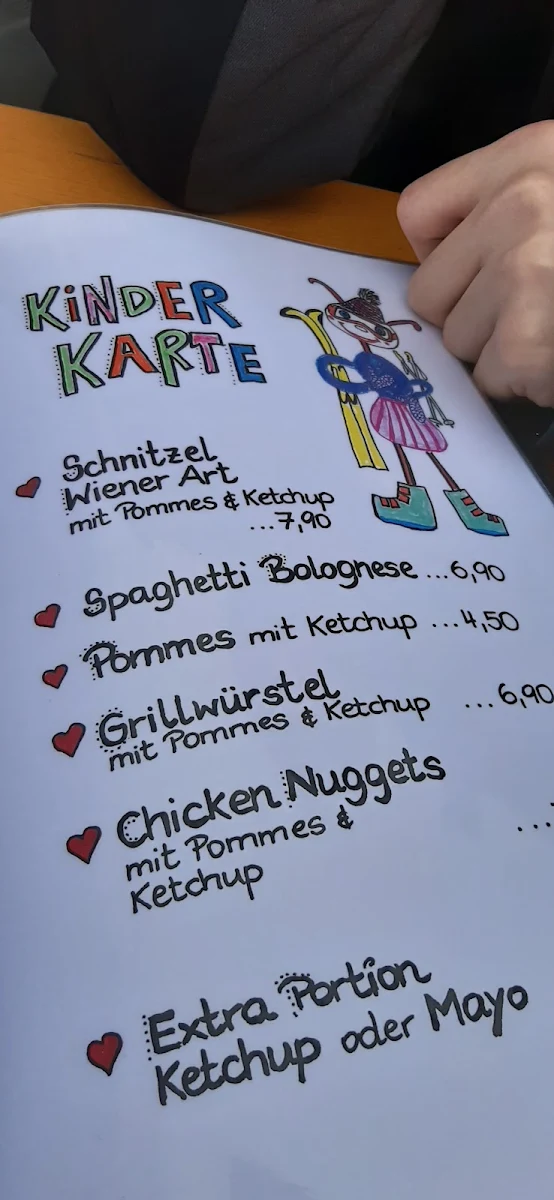 KiNDER
KARTE
Schnitzel
Wiener Art
mit Pommes & Ketchup
...7,90
Spaghetti Bolognese ...6,90
Pommes mit Ketchup ...4,50
Grillwürstel
mit Pommes & Ketchup ...6,90
Chicken Nuggets
mit Pommes & ...
Ketchup
Extra Portion
Ketchup oder Mayo